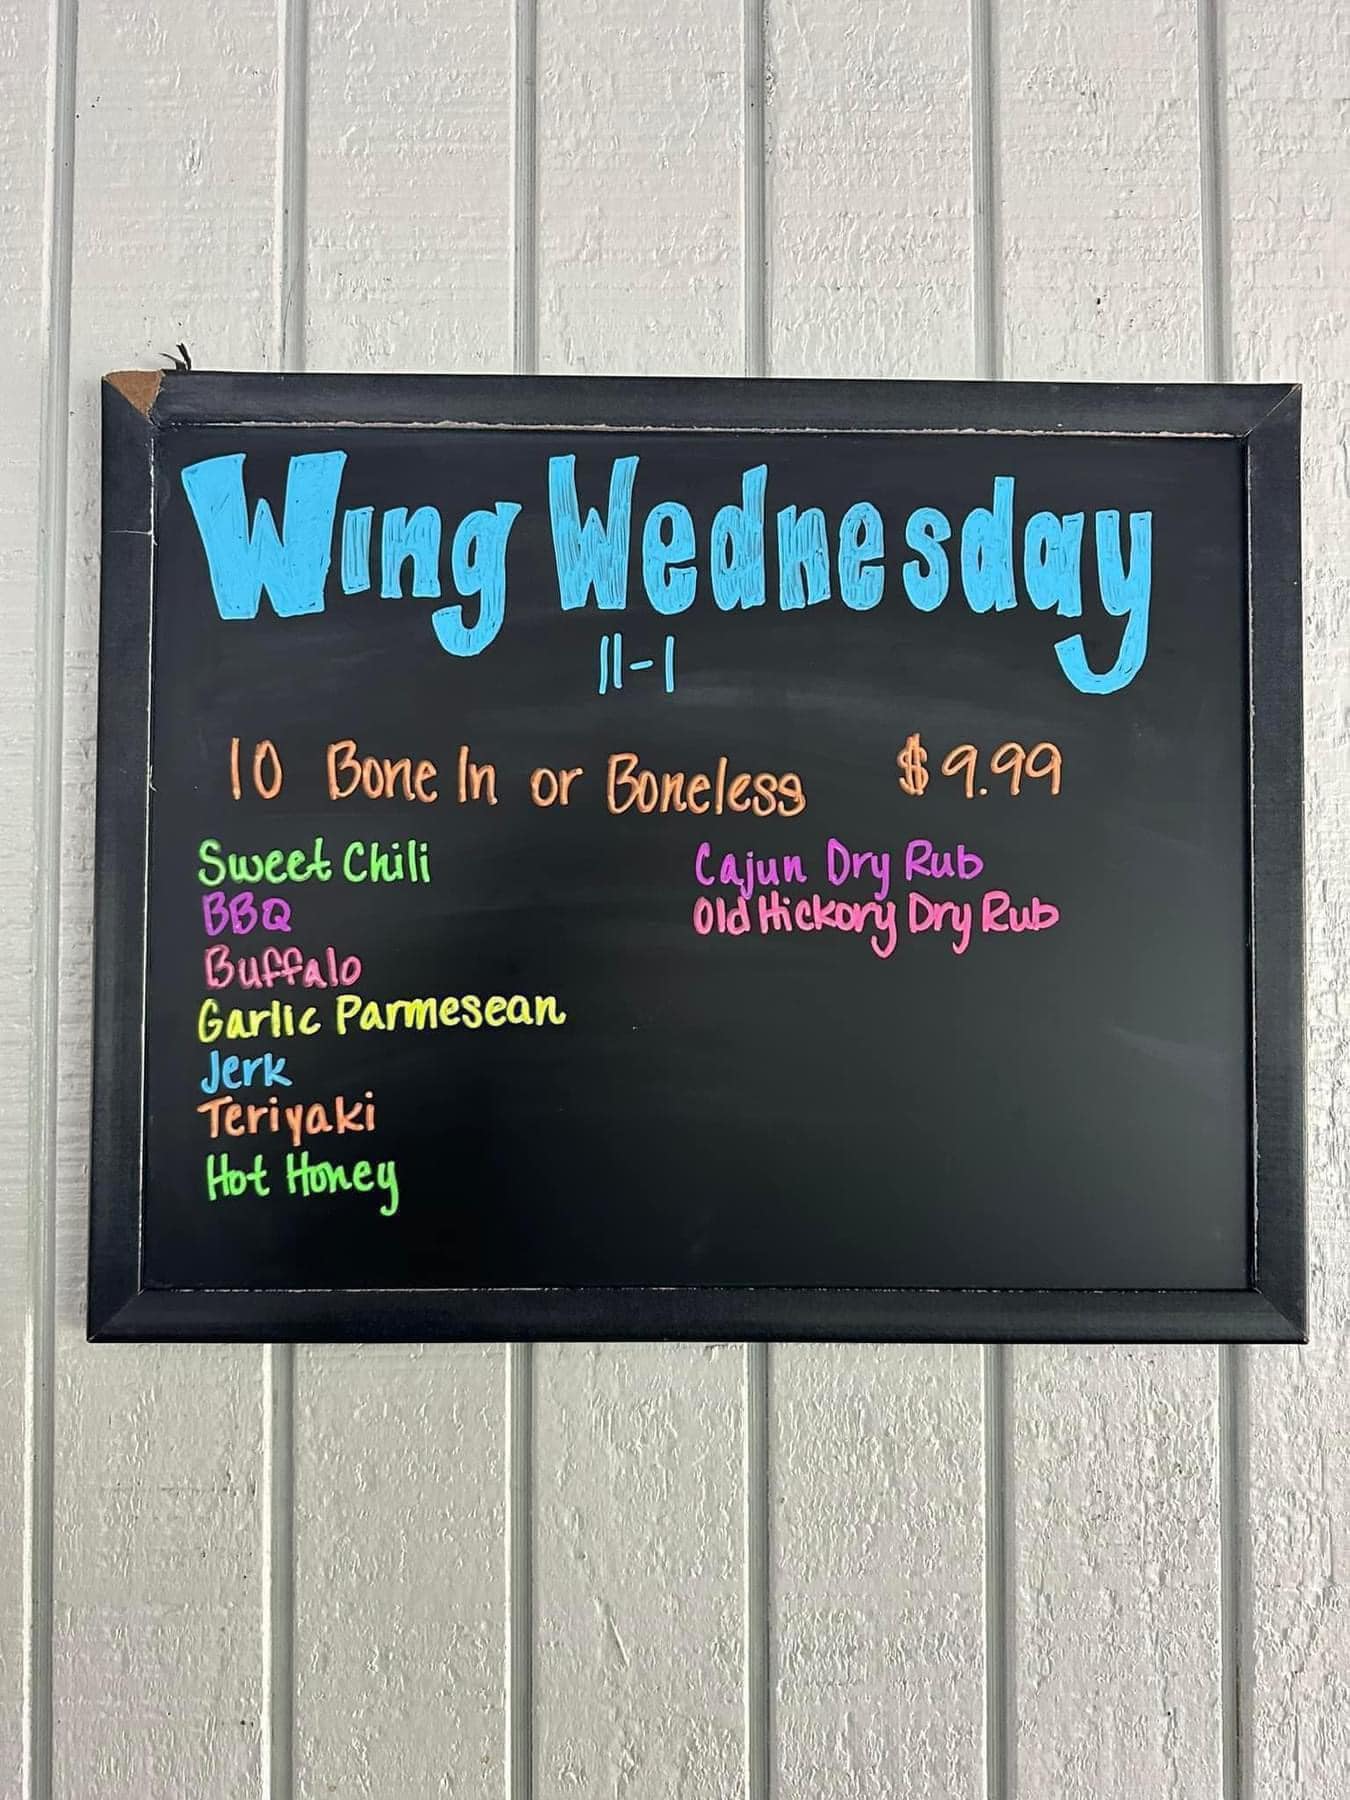 Wing Wednesday
11-1
10 Bone In or Boneless $9.99
Sweet Chili
BBQ
Buffalo
Garlic Parmesean
Jerk
Teriyaki
Hot Honey
Cajun Dry Rub
Old Hickory Dry Rub